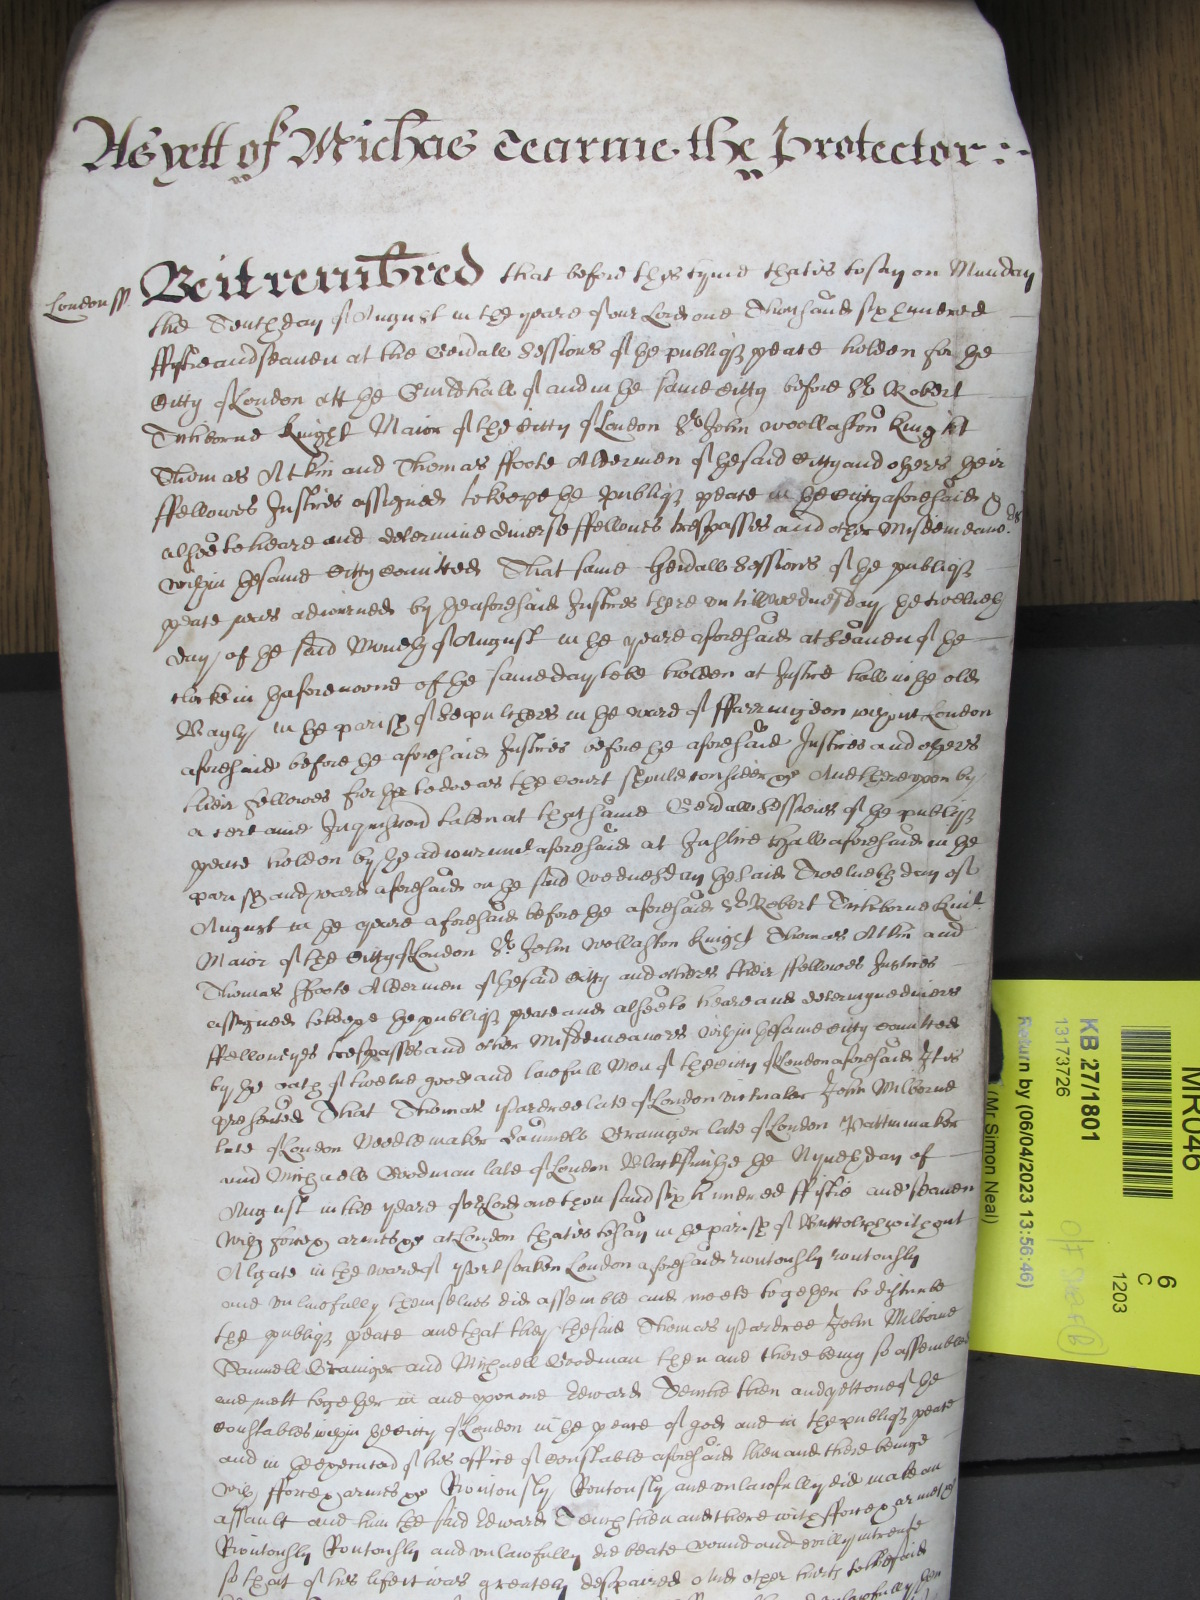 As yett of Michas Tearme the Protector :-
London ss Be it remembred that before this tyme thatis to say on Munday
the Tenth day of August in the yeare of our Lord one Thousand six hundred
ffiftie and seaven at the Gen'all Sessions of the publiq peace holden for the
Citty of London att the Guildhall of and in the same Citty before Sr Robert
Titchborne Knight Maior of the Citty of London Sr John Woollaston Knight
Thomas Atkin and Thomas ffoote Aldermen of the said Citty and others their
ffellowes Justices assigned to keepe the publiq peace in the Citty aforesaid &
alsoe to heare and determine diverse ffellonies trespasses and other Misdemeano.rs
within the same Citty Comitted That same Gen'all Sessions of the publiq
peace was adiourned by the aforesaid Justices there untill Wednesday the twelveth
day of the said Moneth of August in the yeare aforesaid at seaven of the
clock in the aforenoone of the same day to be holden at Justice hall in the old
Bayly in the parish of Sepulchers in the ward of ffarringdon without London
aforesaid before the aforesaid Justices before the aforesaid Justices and others
their fellowes for the to doe as the Court should consider &c And thereupon by
a certaine Inquisicon taken at that same Gen'all Sessions of the publiq
peace holden by the adiournmt aforesaid at Justice Hall aforesaid in the
parish and ward aforesaid on the said Wednesday the said Twelveth day of
August in the yeare aforesaid before the aforesaid Sr Robert Titchborne Knit
Maior of the Citty of London Sr John Wollaston Knight Thomas Atkin and
Thomas ffoote Aldermen of the said Citty and others their ffellowes Justices
assigned to keepe the publiq peace and alsoe to heare and determyne divers
ffellonyes trespasses and other Misdemeanores within the same Citty Comitted
by the oath of twelve good and lawfull Men of the Citty of London aforesaid It is
presented That Thomas Yardree late of London Victualer John Milborne
late of London Needlemaker Samuell Grainger late of London Pattinmaker
and Michaell Goodman late of London Blacksmithe the Nyneth day of
August in the yeare of or Lord one thousand six hundred ffiftie and seaven
with force & armes &c at London thatis to say in the parish of Buttolph without
Algate in the ward of Portsoaken London aforesaid rioutously routously
and unlawfully themselves did assemble and meete together to disturbe
the publiq peace and that they the said Thomas Yardree John Milborne
Samuell Grainger and Michaell Goodman then and there being so assembled
and mett together in and upon one Edward Tench then and yett one of the
Constables within the Citty of London in the peace of god and in the publiq peace
and in the execucon of his office of Constable aforesaid then and there beinge
with fforce & armes &c Rioutously Routously and unlawfully did make an
assault and him the said Edward Tench then and there with fforce & armes &c
Rioutously Routously and unlawfully did beate wound and evilly intreate
so that of his life it was greately despaired And other hurts to the said
unlawfully
MR046
KB 27/1801
13173726
Return by (06/04/2023 13:56:46)
(Mr Simon Neal)
6
C
1203